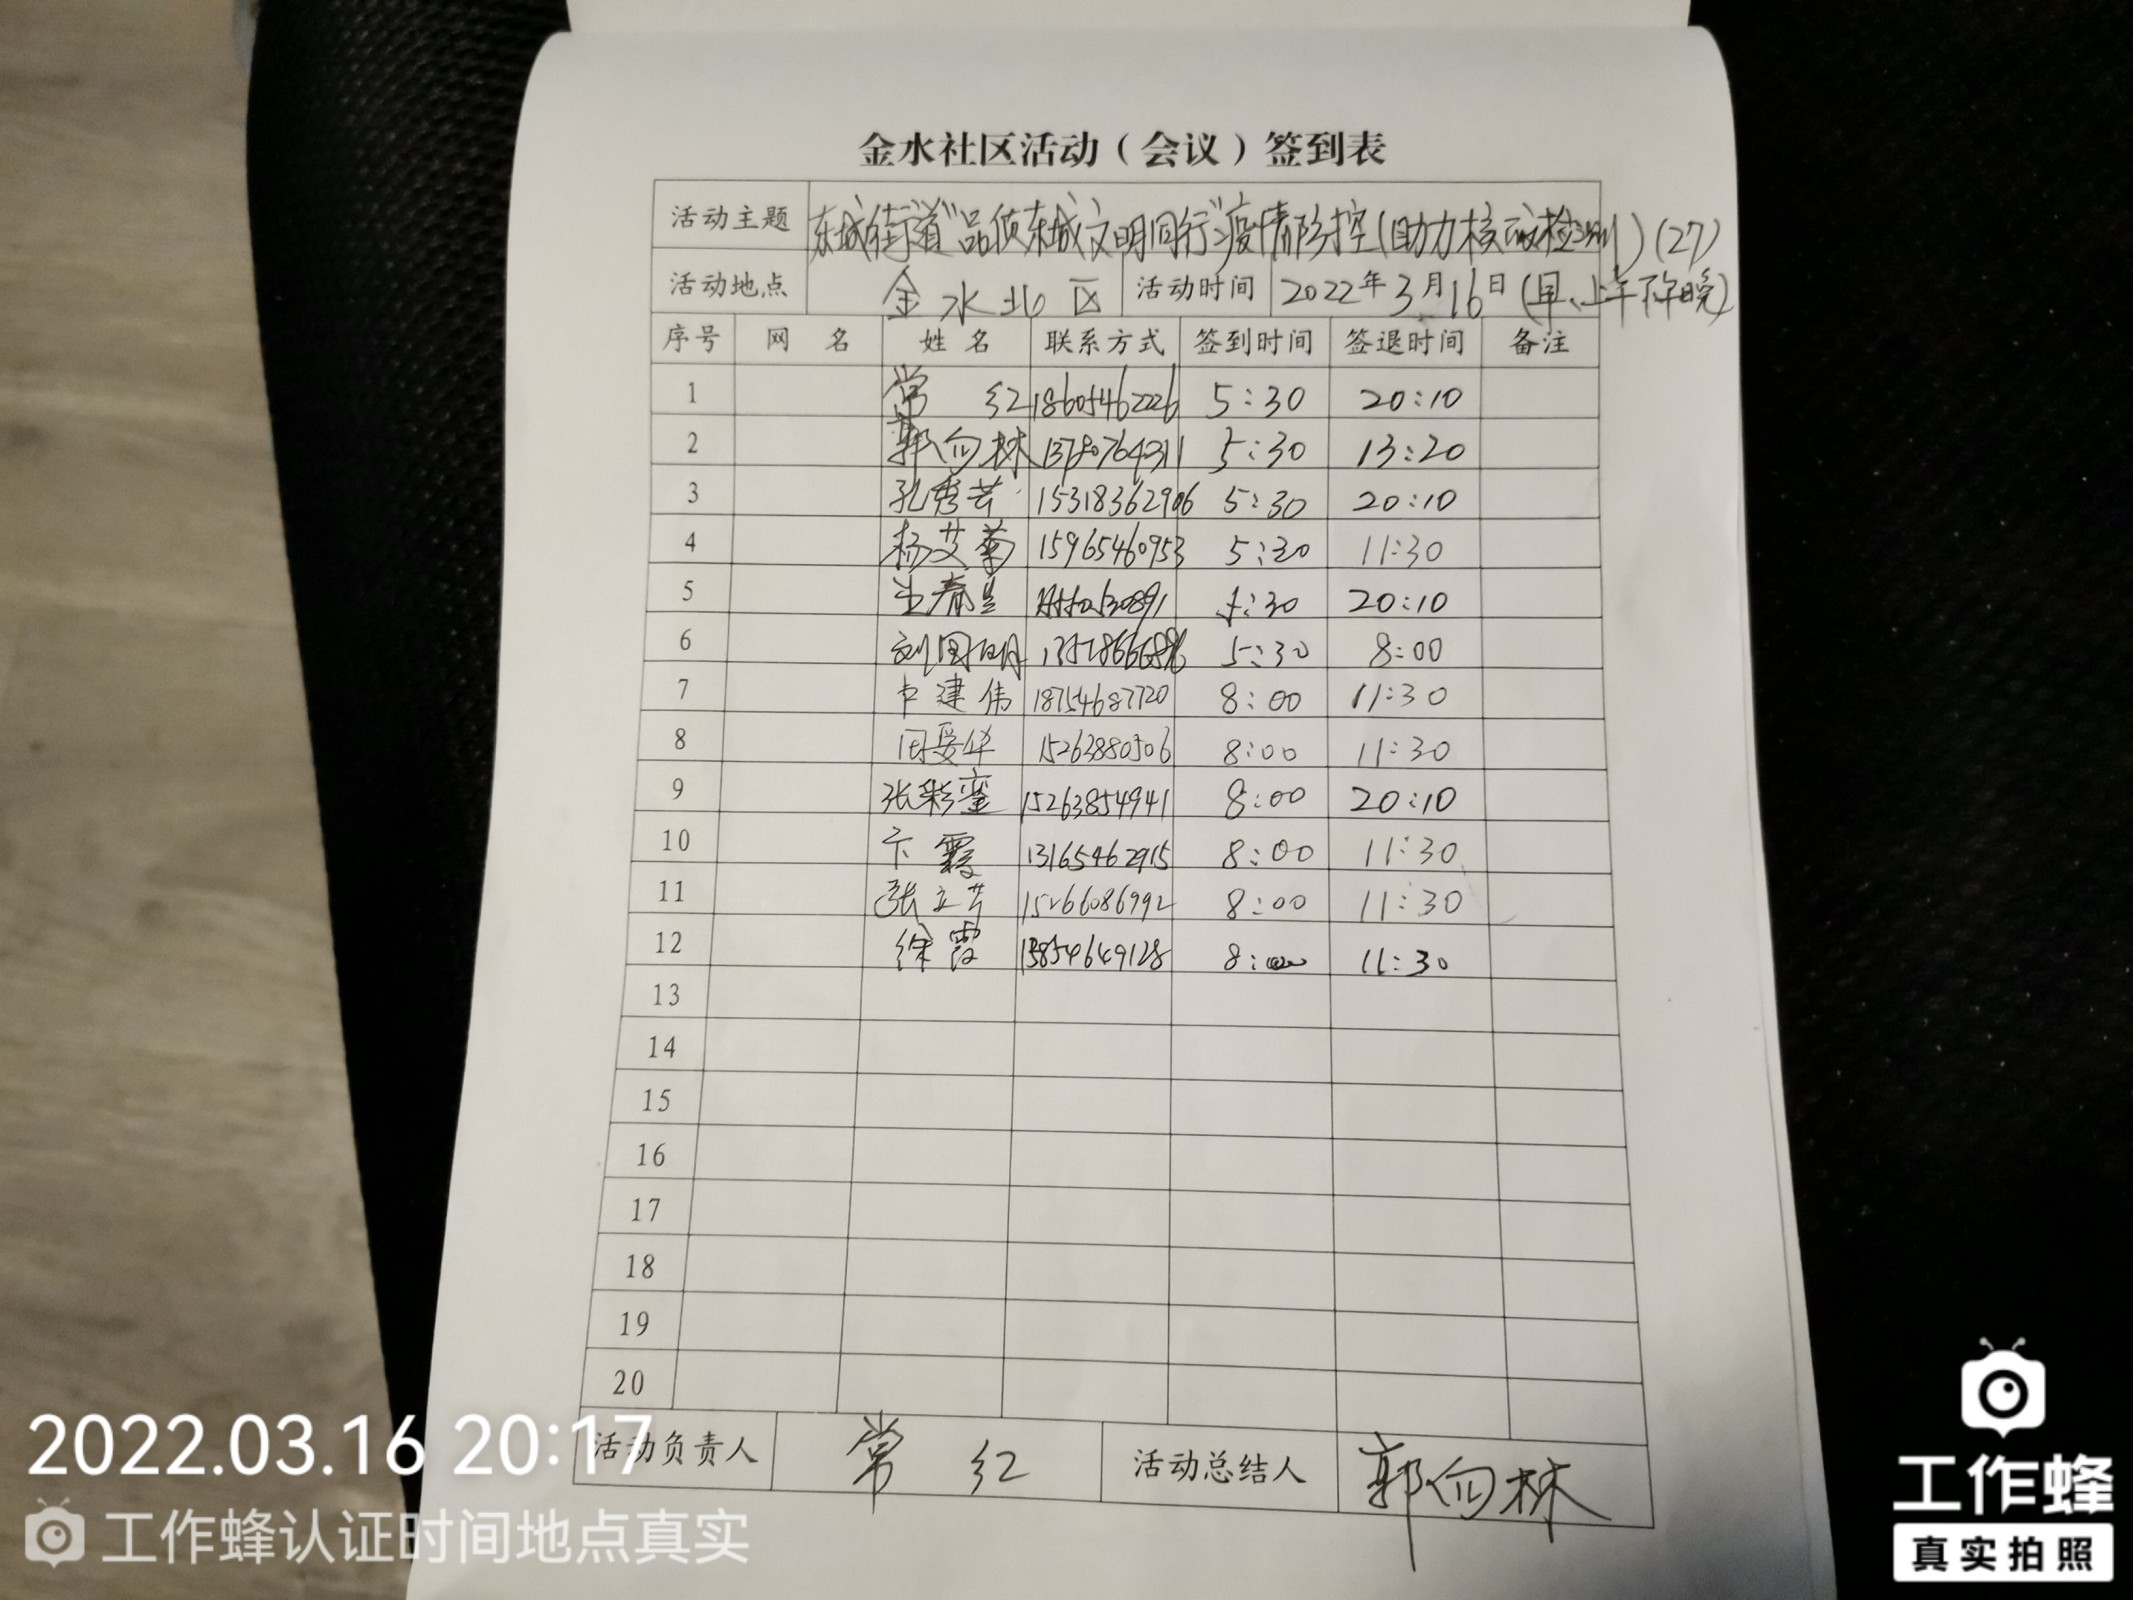 金水社区活动（会议）签到表
活动主题 东城街道"品质东城文明同行"疫情防控(助力核酸检测)(27)
活动地点 金水北区 活动时间 2022年3月16日(早、上午下午晚)
序号 网 名 姓 名 联系方式 签到时间 签退时间 备注
1 常 红 18605462226 5:30 20:10
2 郭向林 13780764311 5:30 13:20
3 孔秀芸 15318362906 5:30 20:10
4 杨艾菊 15965460953 5:30 11:30
5 5:30 20:10
6 刘国明 5:30 8:00
7 建伟 18754687720 8:00 11:30
8 15263880506 8:00 11:30
9 张彩銮 15263854941 8:00 20:10
10 卞霞 13165462915 8:00 11:30
11 张立芳 15266086992 8:00 11:30
12 徐霞 13854649128 8:00 11:30
13
14
15
16
17
18
19
20
活动负责人 常 红 活动总结人 郭向林
2022.03.16 20:17
工作蜂认证时间地点真实
工作蜂
真实拍照